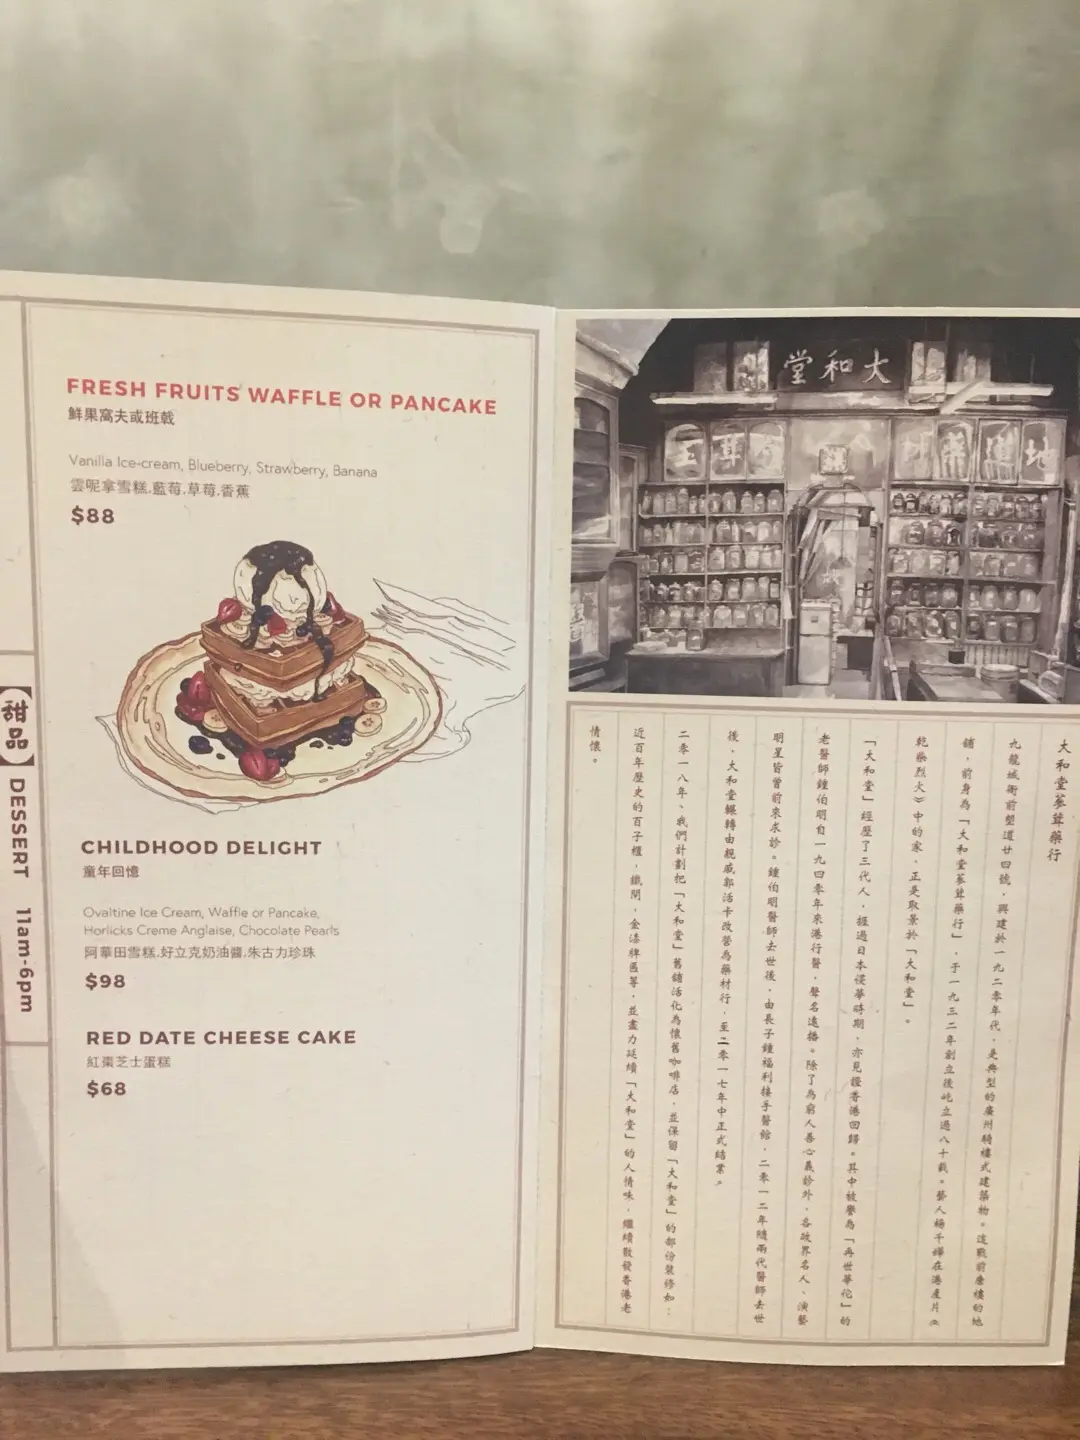 【甜品】 DESSERT 11am-6pm
FRESH FRUITS WAFFLE OR PANCAKE
鮮果窩夫或班戟
Vanilla Ice-cream, Blueberry, Strawberry, Banana
雲呢拿雪糕.藍莓.草莓.香蕉
$88
CHILDHOOD DELIGHT
童年回憶
Ovaltine Ice Cream, Waffle or Pancake,
Horlicks Creme Anglaise, Chocolate Pearls
阿華田雪糕.好立克奶油醬.朱古力珍珠
$98
RED DATE CHEESE CAKE
紅棗芝士蛋糕
$68
堂和大
地道藥材
大和堂蔘茸藥行
九龍城衙前塱道廿四號，興建於一九二零年代，是典型的廣州騎樓式建築物。這戰前唐樓的地
舖，前身為「大和堂蔘茸藥行」，于一九三二年創立後屹立過八十載。藝人楊千嬅在港產片《
乾柴烈火》中的家，正是取景於「大和堂」。
「大和堂」經歷了三代人，經過日本侵華時期，亦見證香港回歸。其中被譽為「再世華佗」的
老醫師鍾伯明自一九四零年來港行醫，聲名遠播。除了為窮人善心義診外，各政界名人、演藝
明星皆曾前來求診。鍾伯明醫師去世後，由長子鍾福利接手醫館，二零一二年隨兩代醫師去世
後，大和堂輾轉由親戚郭活卡改營為藥材行，至二零一七年中正式結業。
二零一八年、我們計劃把「大和堂」舊舖活化為懷舊咖啡店，並保留「大和堂」的部份裝修如：
近百年歷史的百子櫃，鐵閘，金漆牌匾等，並盡力延續「大和堂」的人情味，繼續散發香港老
情懷。